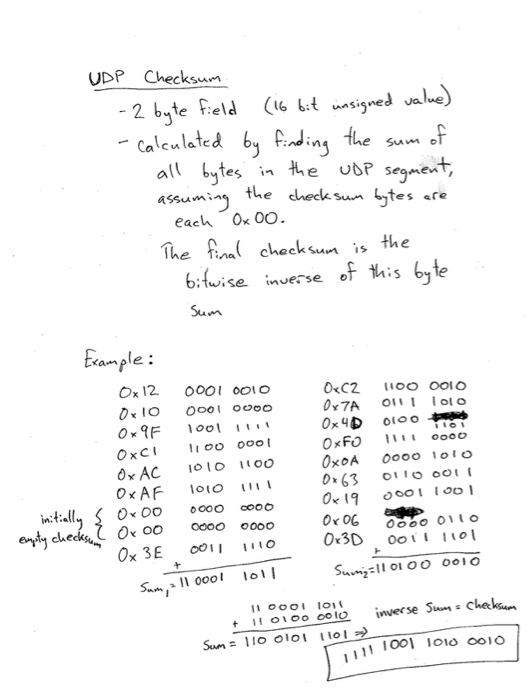 UDP Checksum
- 2 byte field (16 bit unsigned value)
- calculated by finding the sum of
all bytes in the UDP segment,
assuming the checksum bytes are
each 0x00.
The final checksum is the
bitwise inverse of this byte
sum
Example:
0x12 0001 0010
0x10 0001 0000
0x9F 1001 1111
0xC1 1100 0001
0xAC 1010 1100
0xAF 1010 1111
initially empty checksum { 0x00 0000 0000
0x00 0000 0000
0x3E 0011 1110
+
Sum1 = 11 0001 1011
0xC2 1100 0010
0x7A 0111 1010
0x4D 0100 1101
0xF0 1111 0000
0x0A 0000 1010
0x63 0110 0011
0x19 0001 1001
0x06 0000 0110
0x3D 0011 1101
+
Sum2 = 11 0100 0010
11 0001 1011
+ 11 0100 0010
Sum = 110 0101 1101 ⇒
inverse sum = checksum
1111 1001 1010 0010